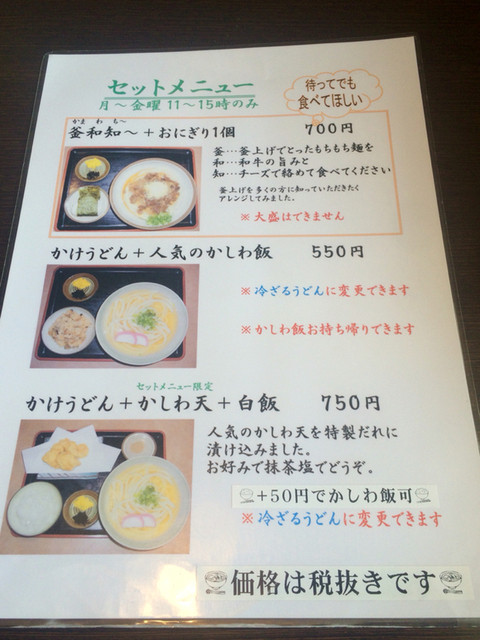 セットメニュー
月～金曜 11～15時のみ
待ってでも
食べてほしい
かま わ ち～
釜和知～＋おにぎり1個 700円
釜…釜上げでとったもちもち麺を
和…和牛の旨みと
知…チーズで絡めて食べてください
釜上げを多くの方に知っていただきたく
アレンジしてみました。
※大盛はできません
かけうどん＋人気のかしわ飯 550円
※冷ざるうどんに変更できます
※かしわ飯お持ち帰りできます
セットメニュー限定
かけうどん＋かしわ天＋白飯 750円
人気のかしわ天を特製だれに
漬け込みました。
お好みで抹茶塩でどうぞ。
＋50円でかしわ飯可
※冷ざるうどんに変更できます
価格は税抜きです